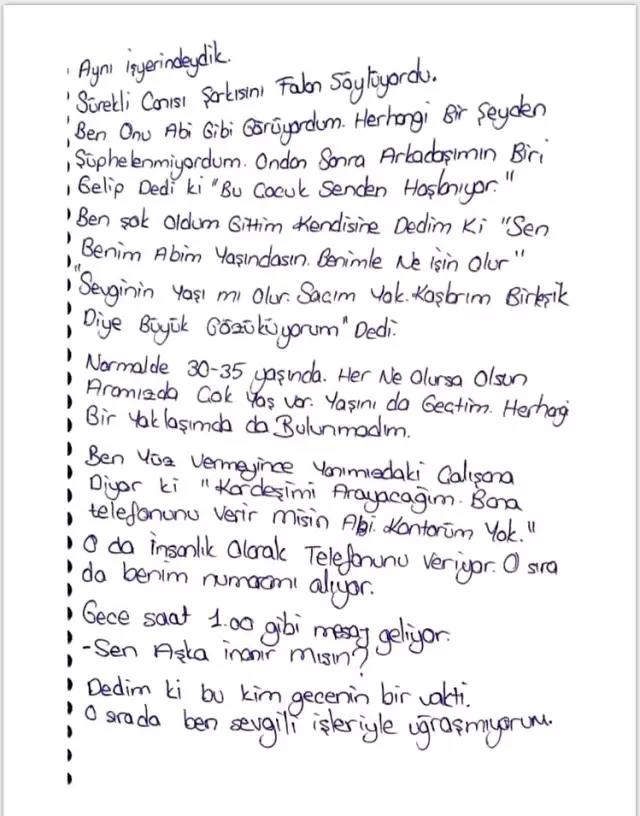 Aynı işyerindeydik.
Sürekli Canısı Şarkısını Falan Söylüyordu.
Ben Onu Abi Gibi Görüyordum. Herhangi Bir Şeyden
Şüphelenmiyordum. Ondan Sonra Arkadaşımın Biri
Gelip Dedi ki "Bu Çocuk Senden Hoşlanıyor."
Ben şok Oldum Gittim Kendisine Dedim Ki "Sen
Benim Abim Yaşındasın. Benimle Ne işin Olur"
"Sevginin Yaşı mı Olur. Saçım Yok. Kaşlarım Birleşik
Diye Büyük Gözüküyorum" Dedi.
Normalde 30-35 yaşında. Her Ne Olursa Olsun
Aramızda Çok Yaş var. Yaşını da Geçtim. Herhagi
Bir Yaklaşımda da Bulunmadım.
Ben Yüz Vermeyince Yanımızdaki Çalışana
Diyor ki "Kardeşimi Arayacağım. Bana
telefonunu Verir misin Abi. Kontörüm Yok."
O da İnsanlık Olarak Telefonunu Veriyor. O sıra
da benim numaramı alıyor.
Gece saat 1.00 gibi mesaj geliyor.
-Sen Aşka inanır mısın?
Dedim ki bu kim gecenin bir vakti.
O sırada ben sevgili işleriyle uğraşmıyorum.